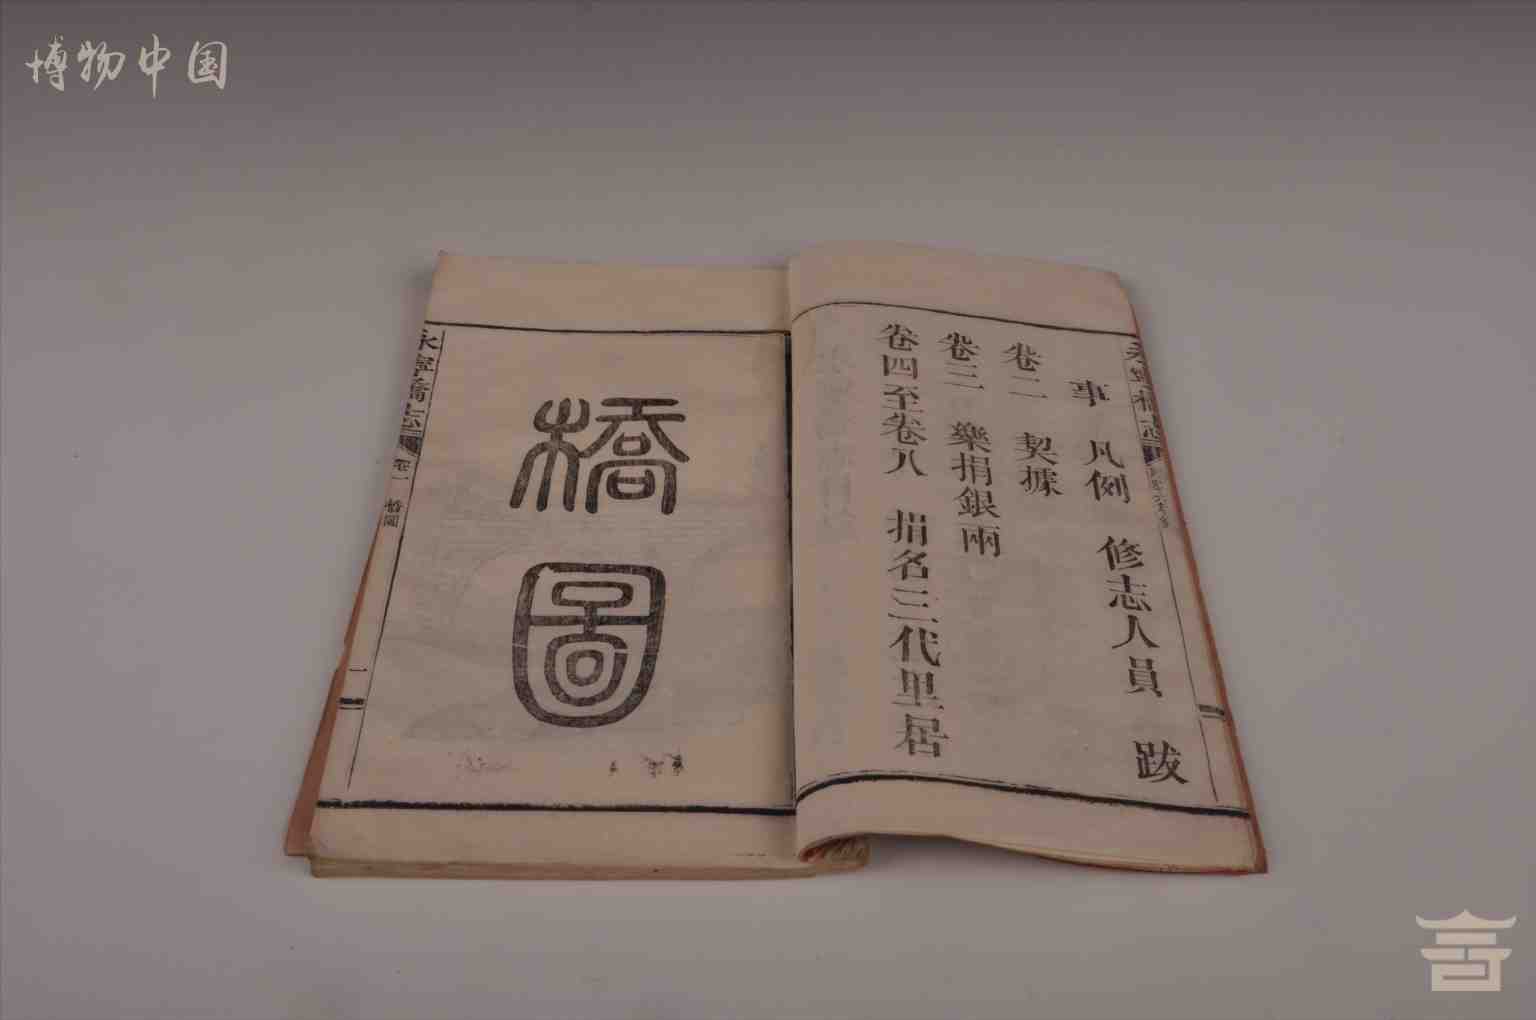 博物中国
永寧橋志
事 凡例 修志人員 跋
卷二 契據
卷三 樂捐銀兩
卷四至卷八 捐名三代里居
橋圖
永寧橋志
卷一 橋圖
一